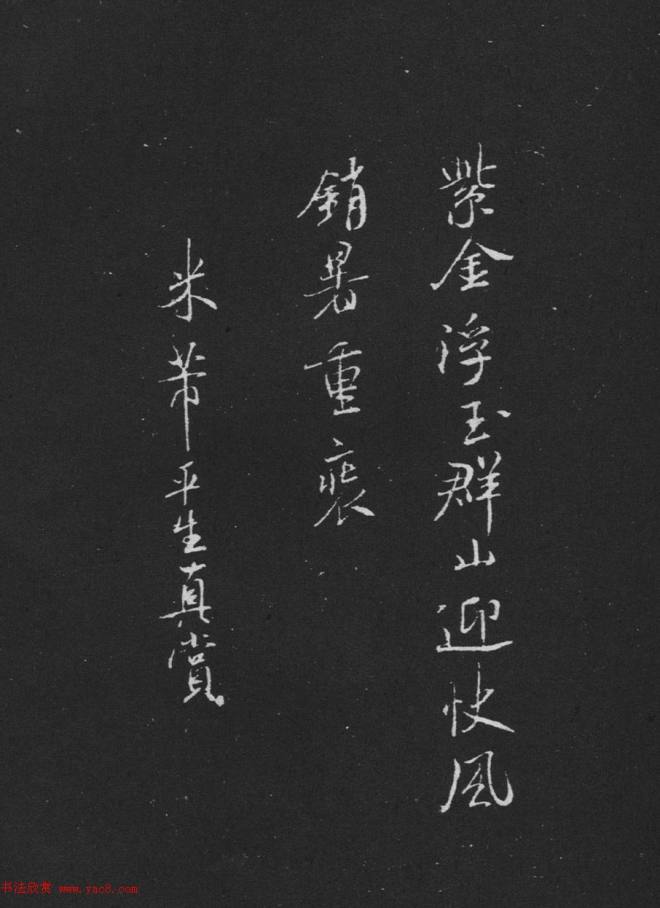 紫金浮玉群山迎快風
銷暑重裘
米芾平生真賞
书法欣赏 www.yac8.com